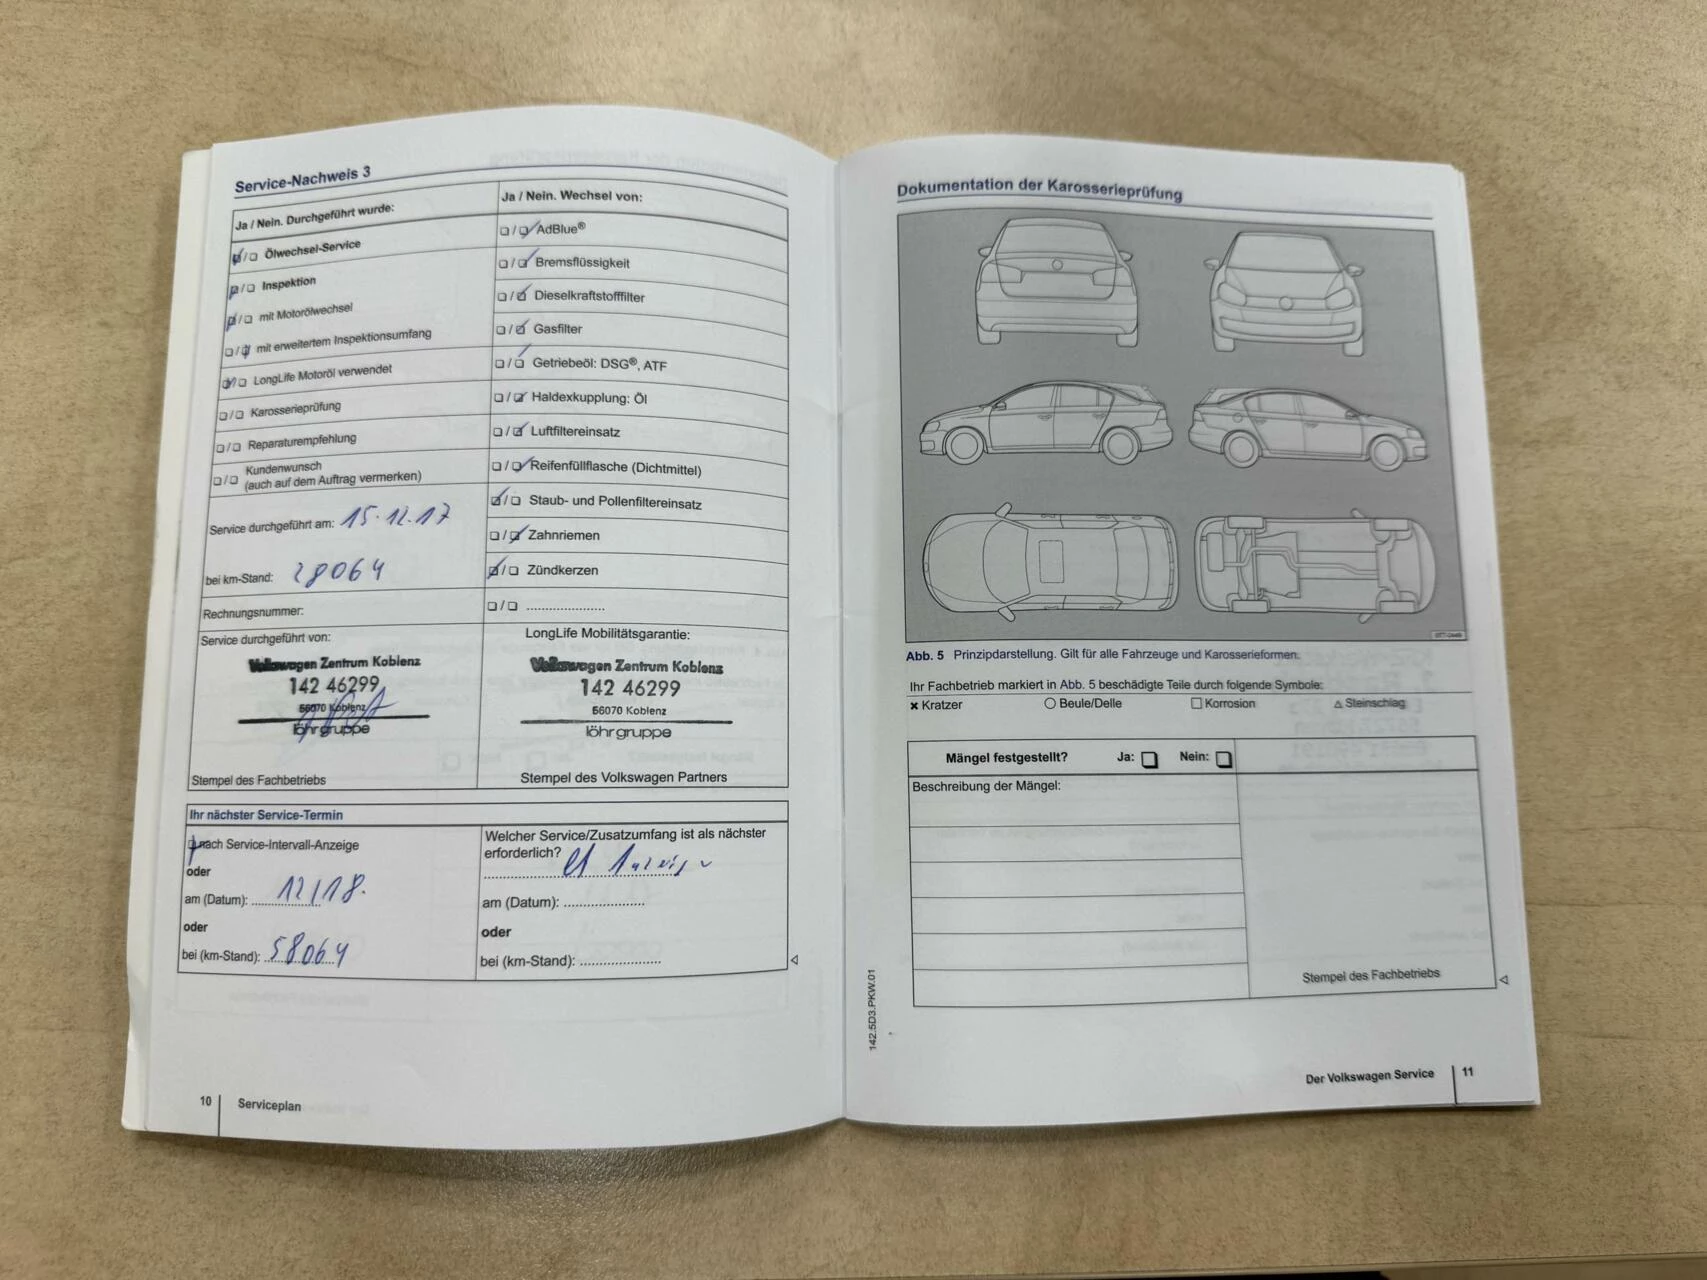 Service-Nachweis 3
Ja / Nein. Durchgeführt wurde:
☑/☐ Ölwechsel-Service
☑/☐ Inspektion
☑/☐ mit Motorölwechsel
☐/☑ mit erweitertem Inspektionsumfang
☑/☐ LongLife Motoröl verwendet
☐/☐ Karosserieprüfung
☐/☐ Reparaturempfehlung
☐/☐ Kundenwunsch
(auch auf dem Auftrag vermerken)
Service durchgeführt am: 15.12.17
bei km-Stand: 28064
Rechnungsnummer:
Ja / Nein. Wechsel von:
☐/☑ AdBlue®
☐/☑ Bremsflüssigkeit
☐/☑ Dieselkraftstofffilter
☐/☑ Gasfilter
☐/☑ Getriebeöl: DSG®, ATF
☐/☑ Haldexkupplung: Öl
☐/☑ Luftfiltereinsatz
☐/☑ Reifenfüllflasche (Dichtmittel)
☑/☐ Staub- und Pollenfiltereinsatz
☐/☑ Zahnriemen
☑/☐ Zündkerzen
☐/☐ ......................
Service durchgeführt von:
Volkswagen Zentrum Koblenz
142 46299
56070 Koblenz
löhrgruppe
Stempel des Fachbetriebs
LongLife Mobilitätsgarantie:
Volkswagen Zentrum Koblenz
142 46299
56070 Koblenz
löhrgruppe
Stempel des Volkswagen Partners
Ihr nächster Service-Termin
☑ nach Service-Intervall-Anzeige
oder
am (Datum): 12/18.
oder
bei (km-Stand): 58064
Welcher Service/Zusatzumfang ist als nächster
erforderlich?
am (Datum): ......................
oder
bei (km-Stand): ......................
10 Serviceplan
Dokumentation der Karosserieprüfung
Abb. 5 Prinzipdarstellung. Gilt für alle Fahrzeuge und Karosserieformen.
Ihr Fachbetrieb markiert in Abb. 5 beschädigte Teile durch folgende Symbole:
× Kratzer ○ Beule/Delle □ Korrosion △ Steinschlag
Mängel festgestellt? Ja: ☐ Nein: ☐
Beschreibung der Mängel:
Stempel des Fachbetriebs
142.5D3.PKW.01
Der Volkswagen Service 11